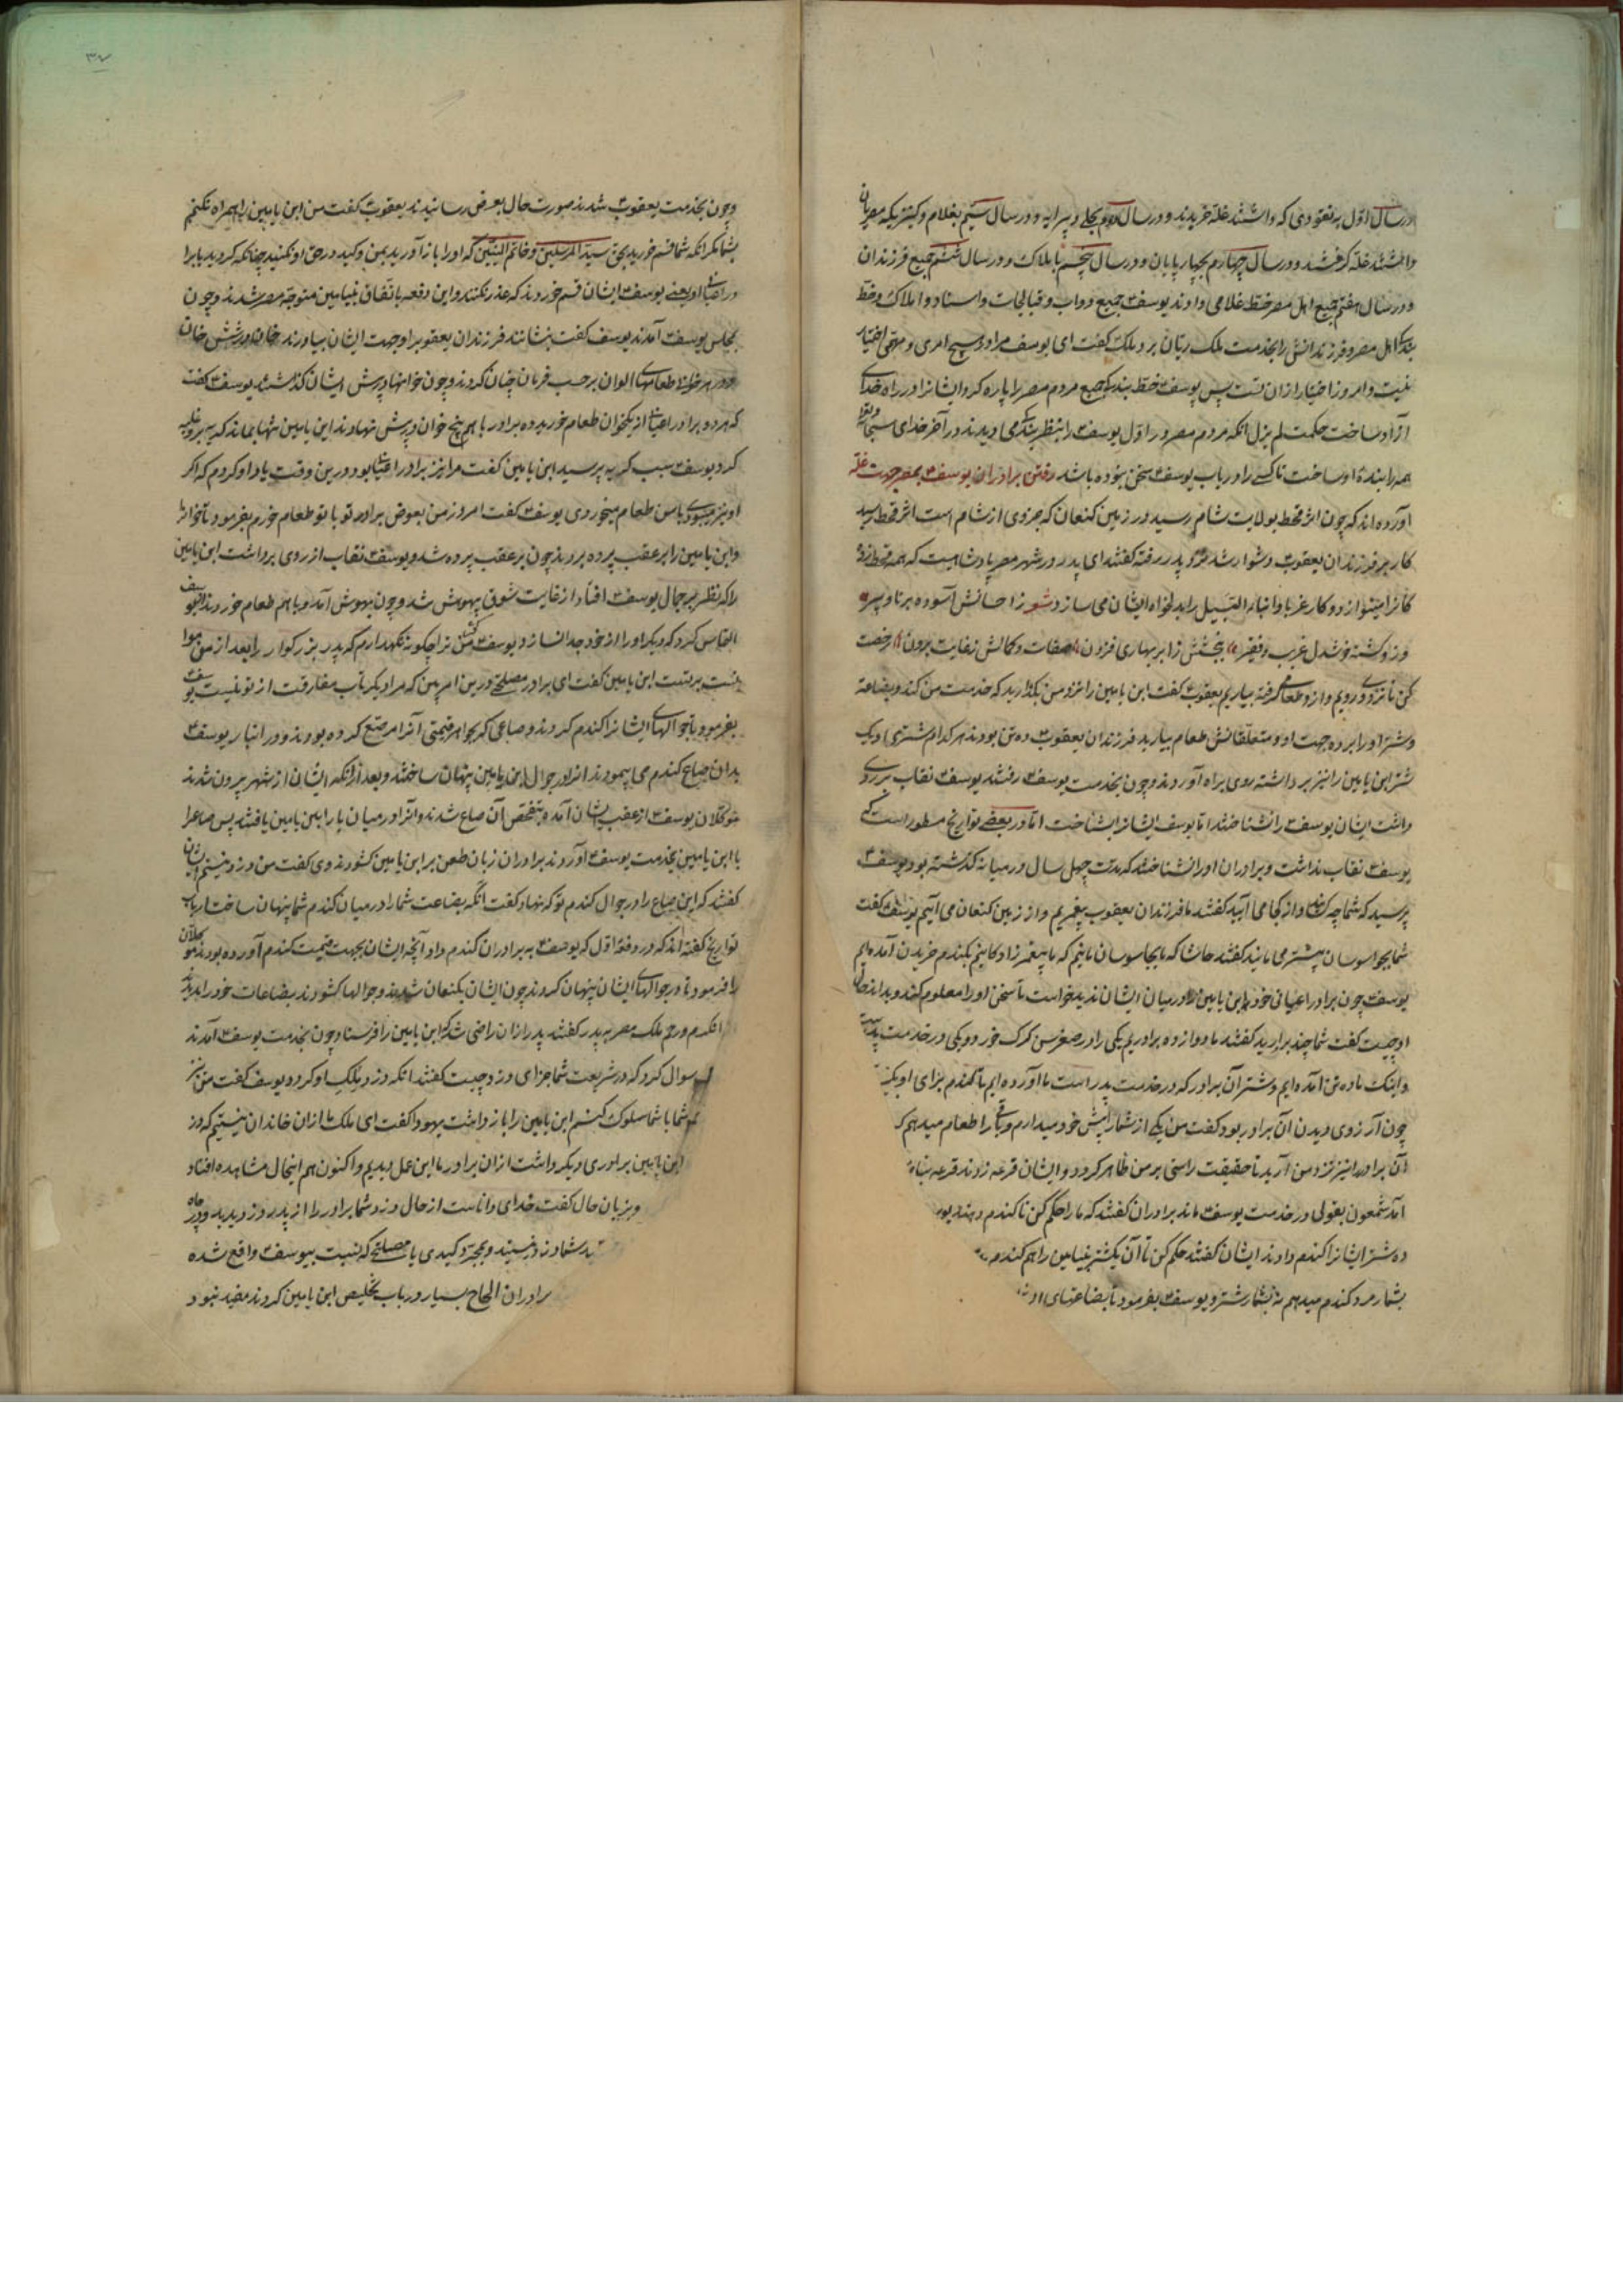 در سال اول به نقودی که داشتند غله خریدند و در سال دوم بحلی و پیرایه و در سال سیم بغلام و کنیزیکه مصریان
داشتند غله گرفتند و در سال چهارم بچهارپایان و در سال پنجم باملاک و در سال ششم جمیع فرزندان
و در سال هفتم جمیع اهل مصر خط غلامی دادند یوسف جمیع دواب و قبالجات و اسناد و املاک و خط
بندگی اهل مصر و فرزندانش را بخدمت ملک ریان برد ملک گفت ای یوسف مرا در هیچ امری و مهمی اختیار
نیست و امروز اختیار از ان تست پس یوسف خط بندگی جمیع مردم مصر را پاره کرد و ایشانرا در راه خدای
آزاد ساخت حکمت لم یزل انکه مردم مصر در اول یوسف را بنظر بندگی می دیدند در آخر خدای سبحانه و تعالی
همه را بنده او ساخت تا کسی را در باب یوسف سخن نبوده باشد رفتن برادران یوسف بمصر جهت غله
آورده اند که چون اثر قحط بولایت شام رسید در زمین کنعان که جزوی از شام است اثر قحط رسید
کار بر فرزندان یعقوب دشوار شد نزد پدر رفته گفتند ای پدر در شهر مصر پادشاهیست که همه قحط زده
کانرا مینوازد و کار غربا و ابناء السبیل را بدلخواه ایشان می سازد شعر ز احسانش آسوده برنا و پیر
وزو گشته خوشدل غریب و فقیر بخشش ز ابر بهاری فزون صفات و کمالش ز غایت برون رخصت
کن تا نزد وی رویم و ازو طعام گرفته بیاریم یعقوب گفت ابن یامین را نزد من بگذارید که خدمت من کند و بضاعة
و شتر او را برده جهت او و متعلقانش طعام بیارید فرزندان یعقوب ده تن بودند هر کدام شتری و یک
شتر ابن یامین را نیز برداشته روی براه آوردند و چون بخدمت یوسف رفتند یوسف نقاب بر روی
داشت ایشان یوسف را نشناختند اما یوسف ایشانرا بشناخت اما در بعضی تواریخ مسطور است که
یوسف نقاب نداشت و برادران او را نشناختند که مدت چهل سال در میانه گذشته بود یوسف
پرسید که شما چه کسانید و از کجا می آیید گفتند ما فرزندان یعقوب پیغمبریم و از زمین کنعان می آییم یوسف گفت
شما بجاسوسان بیشتر می مانید گفتند حاشا که ما بجاسوسان مانیم که ما پیغمبرزادگانیم بگندم خریدن آمده ایم
یوسف چون برادر اعیانی خود ابن یامین را در میان ایشان ندید خواست تا سخن او را معلوم کند و بداند حال
او چیست گفت شما چند برادرید گفتند ما دوازده برادریم یکی را در صغر سن گرگ خورد و یکی در خدمت پدرست
و اینک ما ده تن آمده ایم و شتر آن برادر که در خدمت پدر است ما آورده ایم تا گندم برای او
چون آرزوی دیدن آن برادر بود گفت من یکی از شما را پیش خود میدارم و باقی را طعام میدهم که
آن برادر را نیز نزد من آرید تا حقیقت راستی بر من ظاهر گردد و ایشان قرعه زدند قرعه بنام
آمد شمعون بقولی در خدمت یوسف ماند برادران گفتند که ما را حکم کن تا گندم دهند
ده شتر ایشانرا گندم دادند ایشان گفتند حکم کن تا آن یکشتر بنیامین را هم گندم
بشمار مرد گندم میدهم نه بشمار شتر و یوسف بفرمود تا بضاعتهای
۳۷
و چون بخدمت یعقوب شدند صورت حال بعرض رسانیدند یعقوب گفت من ابن یامین را همراه نکنم
بشما مگر انکه شما قسم خورید بحق سید المرسلین و خاتم النبیین که او را باز آورید بمن و کید در حق او نکنید چنانکه کردید با برادر
اعیانی او یعنی یوسف ایشان قسم خوردند که عذر نکنند و این دفعه باتفاق بنیامین متوجه مصر شدند و چون
بمجلس یوسف آمدند یوسف گفت بنشانند فرزندان یعقوب را و جهت ایشان بیاورند خوان در شش خوان
و در هر خوانی طعامهای الوان بر حسب فرمان چنان کردند و چون خوانها در پیش ایشان گذاشتند یوسف گفت
که هر دو برادر اعیانی از یکخوان طعام خورید ده برادر با هم پنج خوان در پیش نهادند ابن یامین تنها بماند گریه بر وی غلبه
کرد یوسف سبب گریه پرسید ابن یامین گفت مرا نیز برادر اعیانی بود درین وقت یاد او کردم که اگر
او نیز میبودی با من طعام میخوردی یوسف گفت امروز من بعوض برادر تو با تو طعام خورم بفرمود تا خوانرا
و ابن یامین را بر عقب پرده بردند چون بر عقب پرده شد و یوسف نقاب از روی برداشت ابن یامین
را که نظر بر جمال یوسف افتاد از غایت شوق بیهوش شد و چون بهوش آمد و با هم طعام خوردند از یوسف
التماس کرد که دیگر او را از خود جدا نسازد یوسف گفت من ترا چگونه نگهدارم که پدر بزرگوار را بعد از من هوا
بتست ابن یامین گفت ای برادر مصلحتی درین امر ببین که مرا دیگر تاب مفارقت از تو نیست یوسف
بفرمود تا جوالهای ایشانرا گندم کردند و صاعی که بجواهر قیمتی آنرا مرصع کرده بودند و در انبار یوسف
بدان صاع گندم می پیمودند انرا در جوال ابن یامین پنهان ساختند و بعد از آنکه ایشان از شهر بیرون شدند
موکلان یوسف از عقب ایشان آمده بتفحص آن صاع شدند و آنرا در میان بار ابن یامین یافتند پس صاع را
با ابن یامین بخدمت یوسف آوردند برادران زبان طعن بر ابن یامین گشودند وی گفت من دزد نیستم ایشان
گفتند که این صاع را در جوال گندم تو که نهاد گفت آنکه بضاعت شما را در میان گندم شما پنهان ساخت ارباب
تواریخ گفته اند که در دفعه اول که یوسف به برادران گندم داد آنچه ایشان بجهت قیمت گندم آورده بودند موکلان
را فرمود تا در جوالهای ایشان پنهان کردند چون ایشان بکنعان شدند و جوالها گشودند بضاعات خود را دیدند
ملک مصر به پدر گفتند پدر ازان راضی شد که ابن یامین را فرستاد چون بخدمت یوسف آمدند
سوال کرد که در شریعت شما جزای دزد چیست گفتند انکه دزد ملک او گردد یوسف گفت من نیز
شما با شما سلوک کنم ابن یامین را باز داشت یهودا گفت ای ملک ما ازان خاندان نیستیم که دزد
ابن یامین برادری دیگر داشت ازان برادر ما این عمل دیدیم و اکنون هم اینحال مشاهده افتاد
و بزبان حال گفت خدای داناست از حال دزد شما برادر را از پدر دزدیدید و در چاه
شما دزد نیستید و بمجرد کیدی یا مصلحتی که نسبت بیوسف واقع شده
برادران الحاح بسیار در باب تخلیص ابن یامین کردند مفید نبود